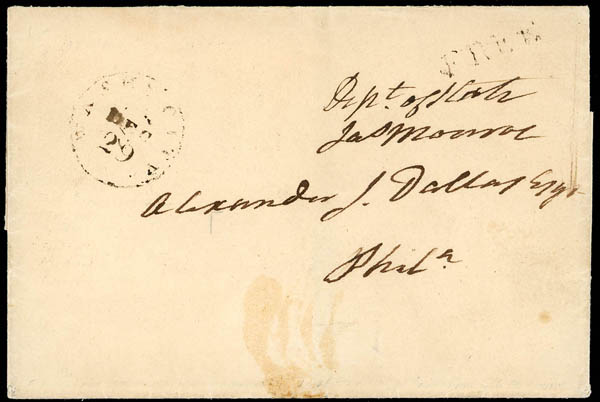 FREE
WASHN. CITY
DEC
29
Dept. of State
Jas Monroe
Alexander J. Dallas Esqr
Phila.